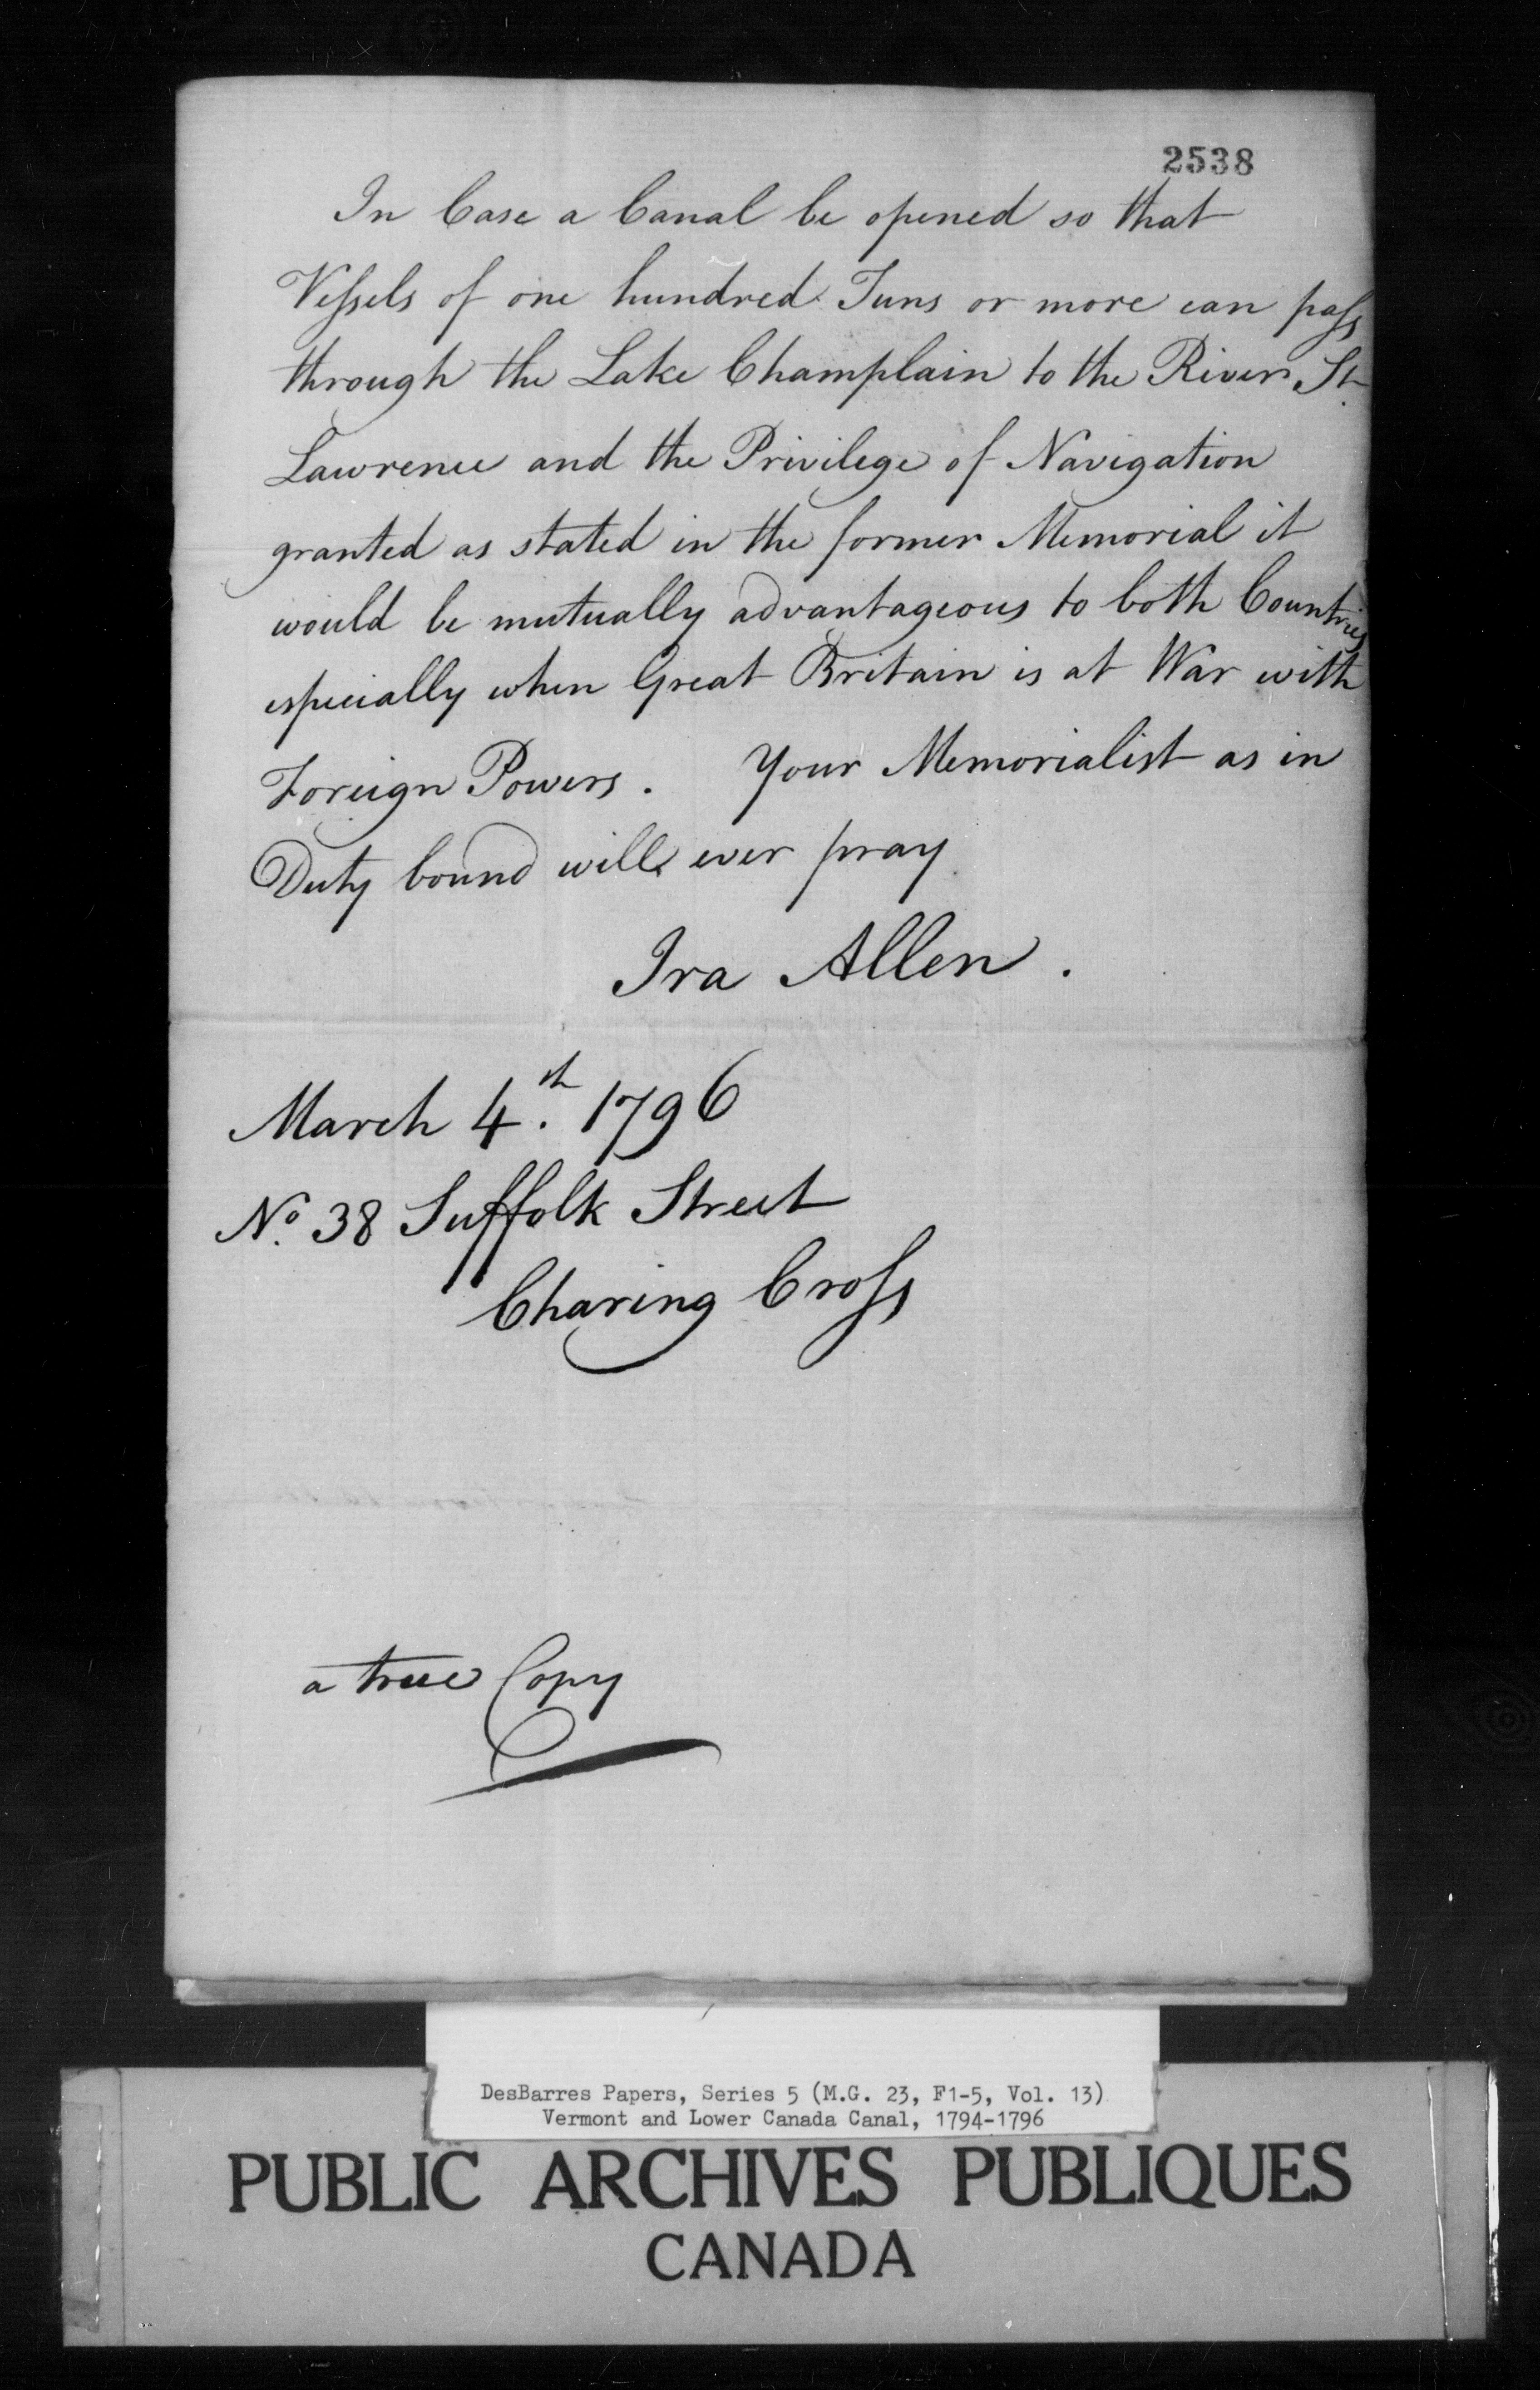 2538
In Case a Canal be opened so that
Vessels of one hundred Tuns or more can pass
through the Lake Champlain to the River St.
Lawrence and the Privilege of Navigation
granted as stated in the former Memorial it
would be mutually advantageous to both Countries
especially when Great Britain is at War with
Foreign Powers. Your Memorialist as in
Duty bound will ever pray
Ira Allen.
March 4.th 1796
No. 38 Suffolk Street
Charing Cross
a true Copy
DesBarres Papers, Series 5 (M.G. 23, F1-5, Vol. 13)
Vermont and Lower Canada Canal, 1794-1796
PUBLIC ARCHIVES PUBLIQUES
CANADA